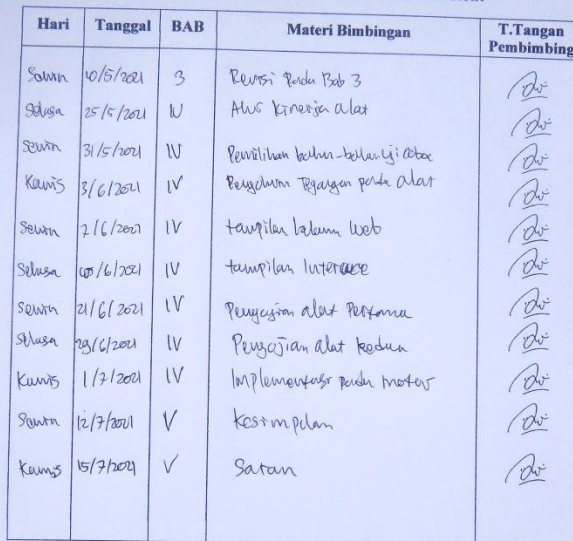 Hari Tanggal BAB Materi Bimbingan T.Tangan Pembimbing
Senin 10/5/2021 3 Revisi Pada Bab 3
Selasa 25/5/2021 IV Alur kinerja alat
Senin 31/5/2021 IV Pemilihan bahan-bahan uji coba
Kamis 3/6/2021 IV Tegangan pada alat
Senin 7/6/2021 IV tampilan web
Selasa /6/2021 IV tampilan Interace
Senin 21/6/2021 IV Pengujian alat Pertama
Selasa 29/6/2021 IV Pengujian alat kedua
Kamis 1/7/2021 IV Implementasi pada motor
Senin 12/7/2021 V Kesimpulan
Kamis 15/7/2021 V Saran